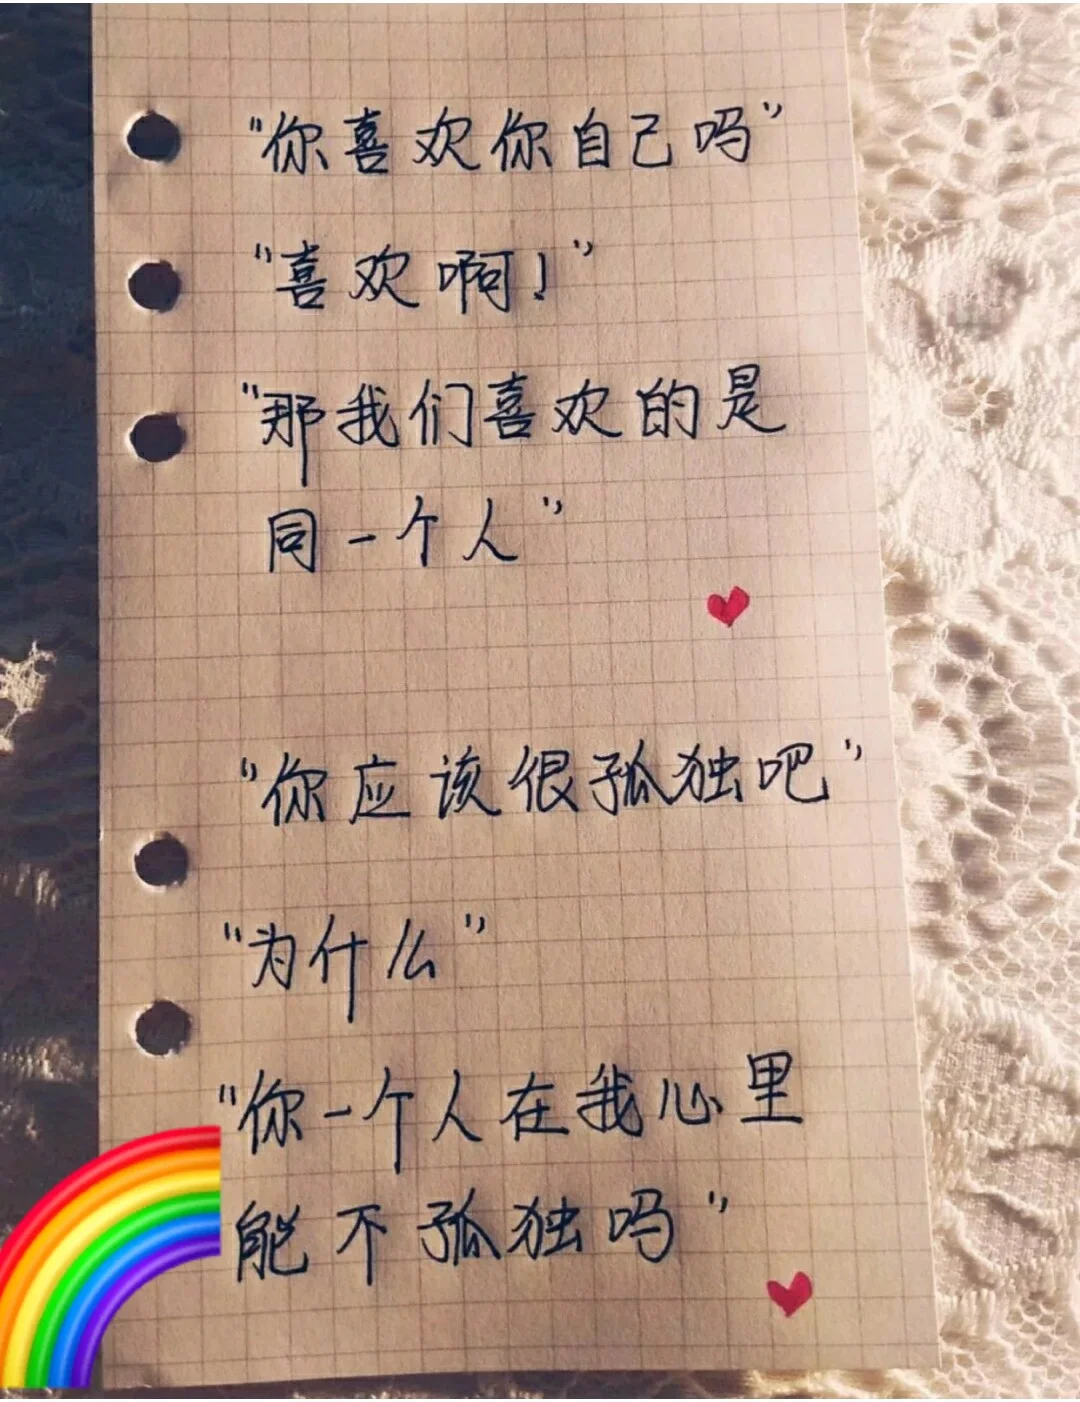 "你喜欢你自己吗"
"喜欢啊！"
"那我们喜欢的是
同一个人"
"你应该很孤独吧"
"为什么"
"你一个人在我心里
能不孤独吗"